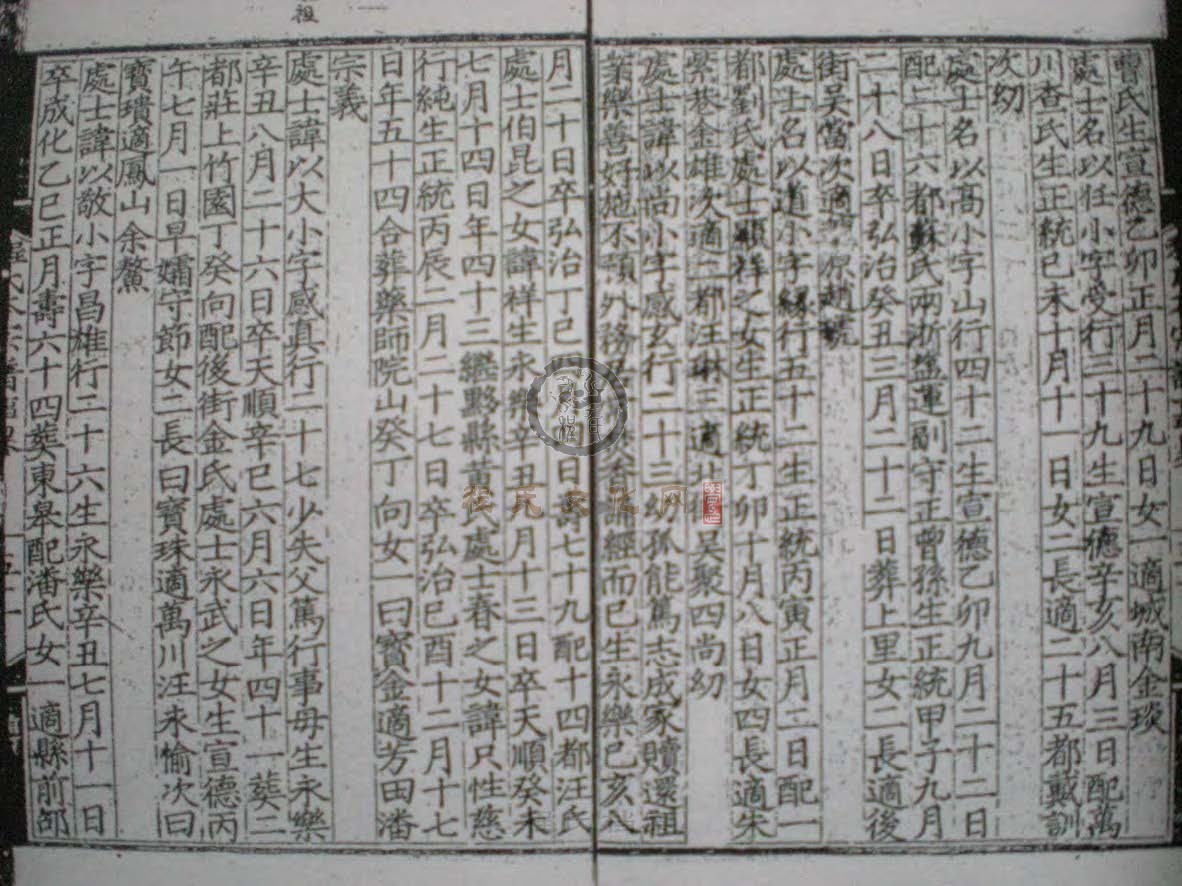 曹氏生宣德乙卯正月二十九日女一適城南金琰
處士名以任小字受行三十九生宣德辛亥八月三日配萬
川查氏生正統己未十月十一日女二長適二十五都戴訓
次幼
處士名以高小字山行四十二生宣德乙卯九月二十二日
配二十六都蘇氏兩浙鹽運副守正曾孫生正統甲子九月
二十八日卒弘治癸丑三月二十二日葬上里女二長適後
街吳當次適源趙
處士名以道小字緣行五十二生正統丙寅正月二日配一
都劉氏處士顯祥之女生正統丁卯十月八日女四長適朱
紫巷金雄次適二都汪琳三適北街吳聚四尚幼
處士諱以尚小字感玄行二十三幼孤能篤志成家贖還祖
業樂善好施不預外務誦經而已生永樂己亥八
月二十日卒弘治丁巳月日壽七十九配十四都汪氏
處士伯昆之女諱祥生永樂辛丑月十三日卒天順癸未
七月十四日年四十三繼黟縣黃氏處士春之女諱只性慈
行純生正統丙辰二月二十七日卒弘治己酉十二月十七
日年五十四合葬藥師院山癸丁向女一曰寶金適芳田潘
宗義
處士諱以大小字感真行二十七少失父篤行事母生永樂
辛丑八月二十六日卒天順辛巳六月六日年四十一葬二
都莊上竹園丁癸向配後街金氏處士永武之女生宣德丙
午七月一日早孀守節女二長曰寶珠適萬川汪永愉次曰
寶璝適鳳山余鰲
處士諱以敬小字昌雄行二十六生永樂辛丑七月十一日
卒成化乙巳正月壽六十四葬東皋配潘氏女一適縣前邵
程氏文化网